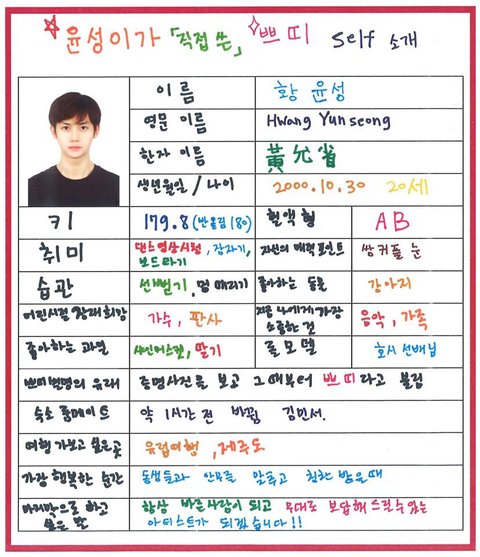 윤성이가 「직접 쓴」 쁘띠 self 소개
이름 황 윤성
영문 이름 Hwang Yunseong
한자 이름 黃允省
생년월일 / 나이 2000.10.30 20세
키 179.8 (반올림 180) 혈액형 AB
취미 댄스영상시청, 잠자기, 보드타기 자신의 매력포인트 쌍커풀 눈
습관 선뻗기, 멍 때리기 좋아하는 동물 강아지
어린시절 장래희망 가수, 판사 지금 나에게 가장 소중한 것 음악, 가족
좋아하는 과일 샤인머스켓, 딸기 롤모델 호시 선배님
쁘띠별명의 유래 증명사진을 보고 그때부터 쁘띠라고 불림
숙소 룸메이트 약 1시간 전 바뀜 김민서.
여행 가보고 싶은곳 유럽여행, 제주도
가장 행복한 순간 동생들과 안무를 맞추고 칭찬 받을때
마지막으로 하고 싶은 말 항상 바른사람이 되고 무대로 보답해 드릴수 있는
아티스트가 되겠습니다!!